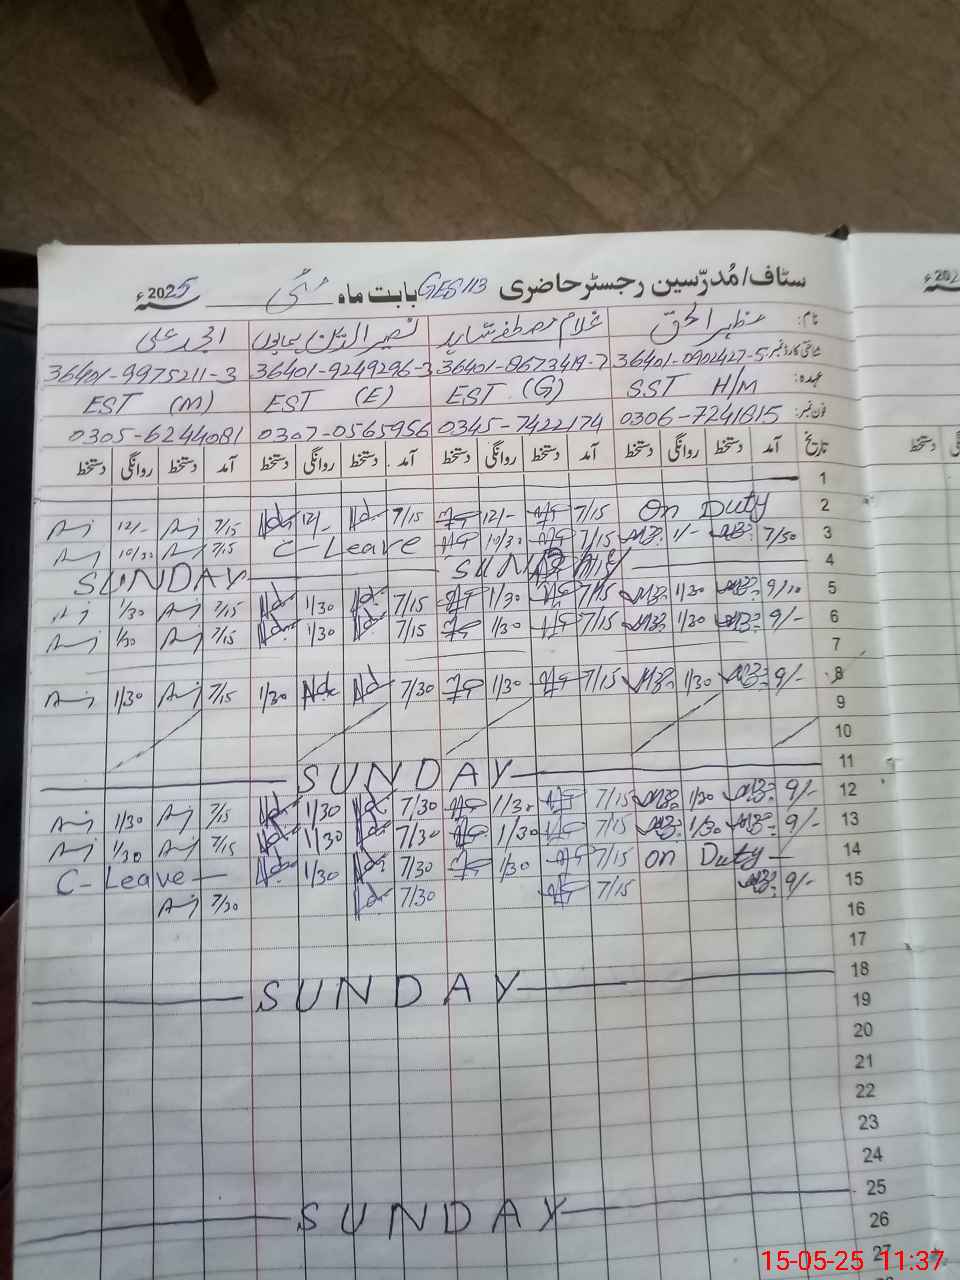 سٹاف/مُدرّسین رجسٹر حاضری GES 113 بابت ماہ مئی 2025ء
نام: مظہر الحق غلام مصطفےٰ شاہد نصیر الدین ہمایوں امجد علی
شناختی کارڈ نمبر: 36401-0902427-5 36401-8673419-7 36401-9249296-3 36401-9975211-3
عہدہ: SST H/M EST (G) EST (E) EST (M)
فون نمبر: 0306-7241815 0345-7422174 0307-0565956 0305-6244081
تاریخ آمد دستخط روانگی دستخط آمد دستخط روانگی دستخط آمد دستخط روانگی دستخط آمد دستخط روانگی دستخط
1
2 On Duty 7/15 12/- 7/15 12/- 7/15 12/-
3 7/50 1/- 7/15 10/30 C-Leave 7/15 10/30
4 SUNDAY SUNDAY
5 9/10 1/30 7/15 1/30 7/15 1/30 7/15 1/30
6 9/- 1/30 7/15 1/30 7/15 1/30 7/15 1/30
7
8 9/- 1/30 7/15 1/30 7/30 1/30 7/15 1/30
9
10
11 SUNDAY
12 9/- 1/30 7/15 1/30 7/30 1/30 7/15 1/30
13 9/- 1/30 7/15 1/30 7/30 1/30 7/15 1/30
14 on Duty 7/15 1/30 7/30 1/30 C-Leave
15 9/- 7/15 7/30 7/30
16
17
18 SUNDAY
19
20
21
22
23
24
25 SUNDAY
26
27
15-05-25 11:37